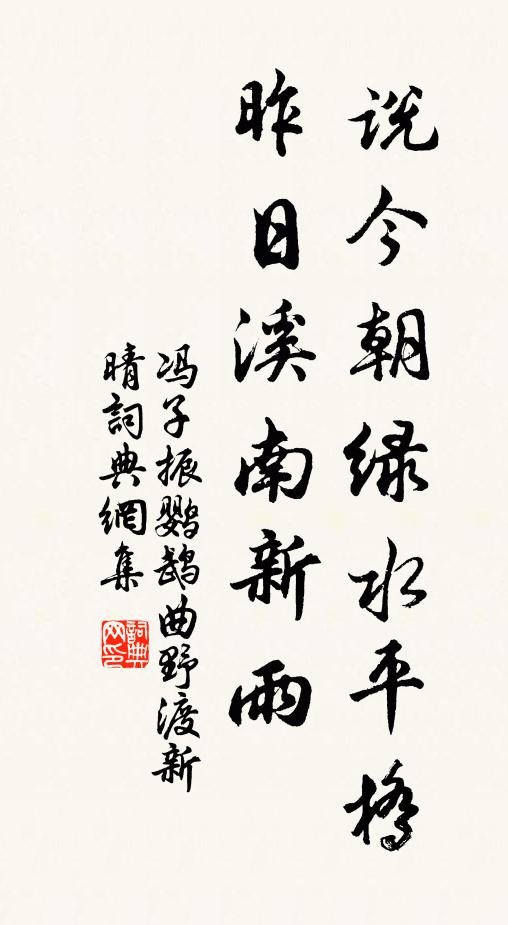 说今朝绿水平桥
昨日溪南新雨
冯子振鹦鹉曲野渡新
晴詞典網集
詞典网印